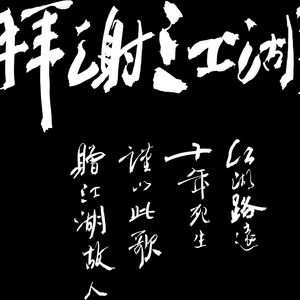 拜谢江湖
江湖路遠
十年死生
謹以此歌
贈江湖故人